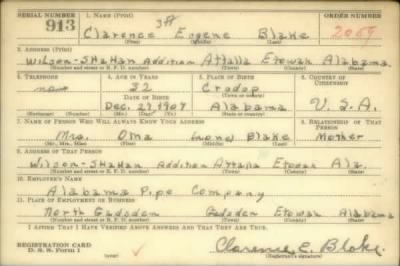 SERIAL NUMBER 1. NAME (Print) ORDER NUMBER
913 Clarence Eugene Blake 2059
(First) (Middle) (Last)
2. ADDRESS (Print)
Wilson-Shahan Addition Attalla Etowah Alabama
(Number and street or R. F. D. number) (Town) (County) (State)
3. TELEPHONE 4. AGE IN YEARS 5. PLACE OF BIRTH 6. COUNTRY OF CITIZENSHIP
none 32
DATE OF BIRTH (Town or county)
Dec. 27, 1907 Alabama U.S.A.
(Exchange) (Number) (Mo.) (Day) (Yr.) (State or country)
7. NAME OF PERSON WHO WILL ALWAYS KNOW YOUR ADDRESS 8. RELATIONSHIP OF THAT PERSON
Mrs. Oma (none) Blake Mother
(Mr., Mrs., Miss) (First) (Middle) (Last)
9. ADDRESS OF THAT PERSON
Wilson-Shahan Addition Attalla Etowah Ala.
(Number and street or R. F. D. number) (Town) (County) (State)
10. EMPLOYER'S NAME
Alabama Pipe Company
11. PLACE OF EMPLOYMENT OR BUSINESS
North Gadsden Gadsden Etowah Alabama
(Number and street or R. F. D. number) (Town) (County) (State)
I AFFIRM THAT I HAVE VERIFIED ABOVE ANSWERS AND THAT THEY ARE TRUE.
REGISTRATION CARD
D. S. S. Form 1 (over) Clarence E. Blake
(Registrant's signature)